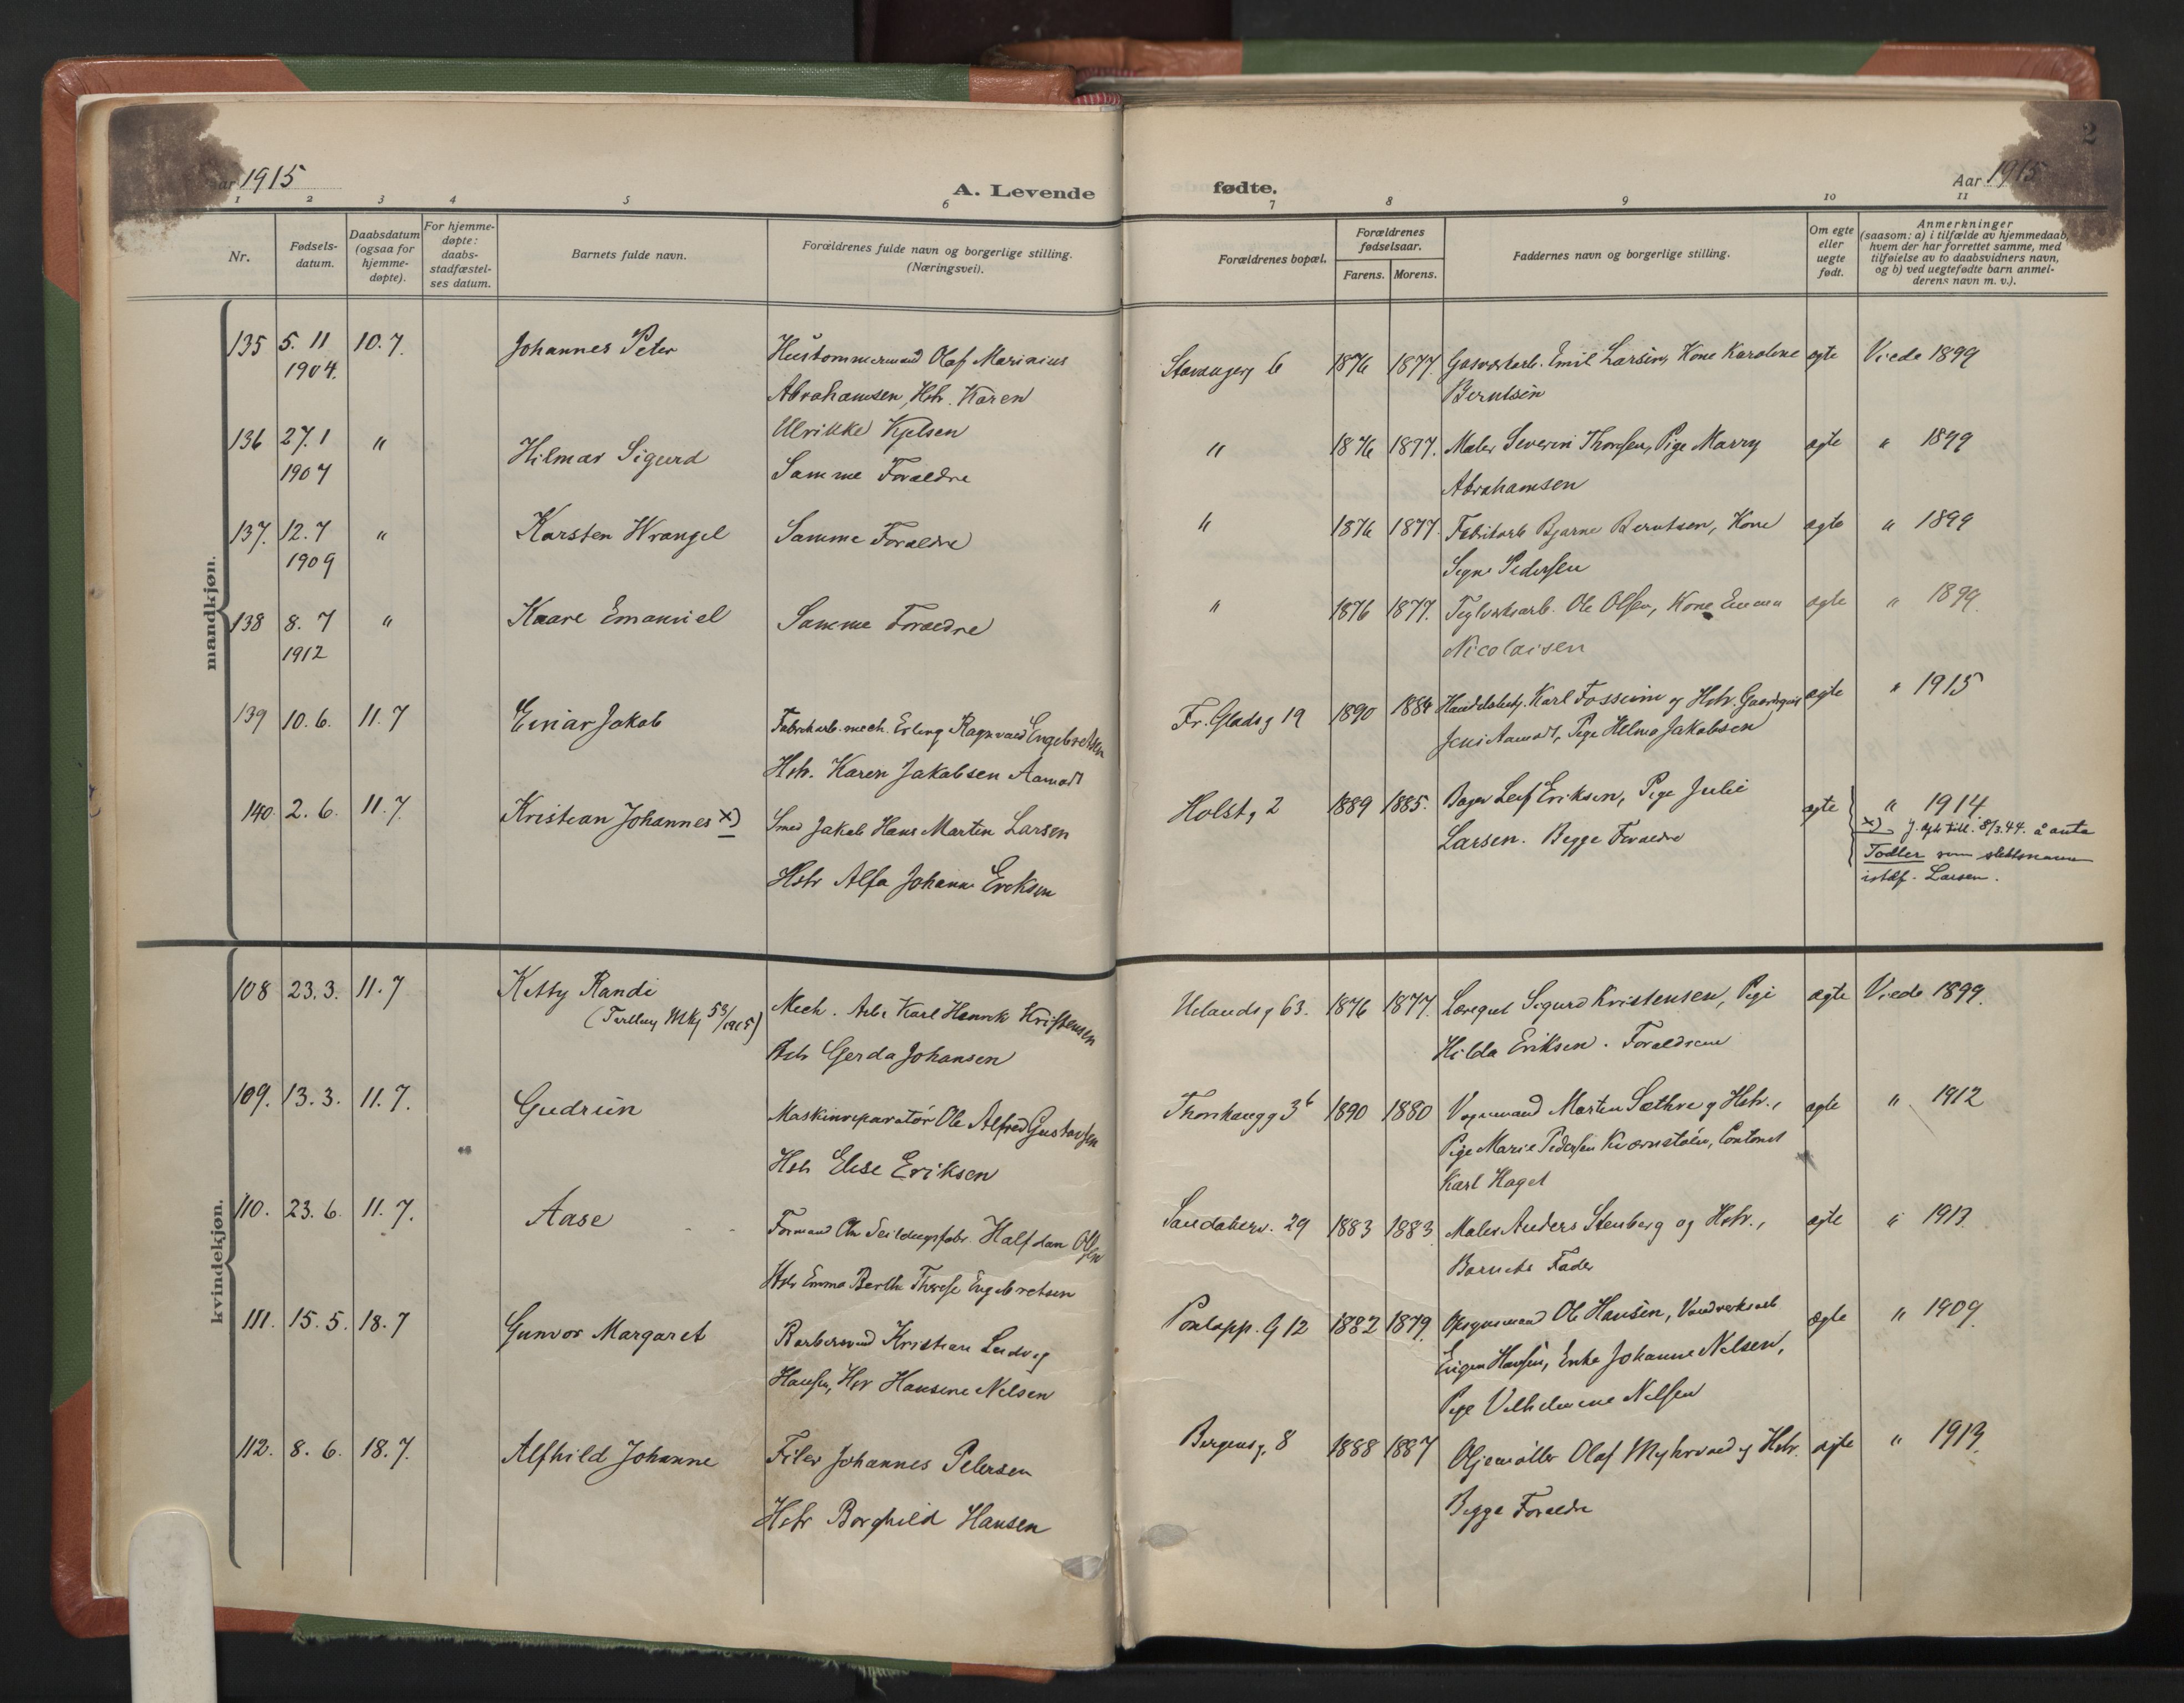 2
Aar 1915
A. Levende
fødte.
Aar 1915
1 2 3 4 5 6 7 8 9 10 11
Nr.
Fødsels-
datum.
Daabsdatum
(ogsaa for
hjemme-
døpte).
For hjemme-
døpte:
daabs-
stadfæstel-
ses datum.
Barnets fulde navn.
Forældrenes fulde navn og borgerlige stilling.
(Næringsvei).
Forældrenes bopæl.
Forældrenes
fødselsaar.
Farens. Morens.
Faddernes navn og borgerlige stilling.
Om egte
eller
uegte
født.
Anmerkninger
(saasom: a) i tilfælde av hjemmedaab,
hvem der har forrettet samme, med
tilføielse av to daabsvidners navn,
og b) ved uegtefødte barn anmel-
derens navn m. v.).
mandkjøn.
135 5. 11 10. 7. Johannes Peter Hustømmermand Olaf Marinius Stavangerg 6 1876 1877. Gasverkarb. Emil Larsen, Kone Karoline egte Viede 1899
1904. Abrahamsen, Hstr. Karen Berntsen
Ulrikke Kjelsen
136 27. 1 " Hilmar Sigurd Samme Foraeldre " 1876 1877. Maler Severin Thoresen, Pige Marry egte " 1899
1907 Abrahamsen
137. 12. 7 " Karsten Wrangel Samme Foraeldre " 1876 1877 Fabrikarb Bjarne Berntsen, Kone egte " 1899
1909 Signe Pedersen
138 8. 7 " Kaare Emanuel Samme Foraeldre " 1876 1877. Teglverksarb. Ole Olsen, Kone Emma egte " 1899.
1912 Nicolaisen
139 10. 6. 11. 7 Einar Jakob Fabrikarb. mech. Erling Ragnvald Engebretsen Fr. Gladsg 19 1890 1884 Karl Fossum og Hstr. egte " 1915
Hstr. Karen Jakobsen Aamodt Jeni Aamodt, Pige Helma Jakobsen
140. 2. 6. 11. 7. Kristian Johannes x) Smed Jakob Hans Martin Larsen Holstg 2 1889 1885. Bager Leif Eriksen, Pige Julie egte " 1914.
Hstr Alfa Johanne Eriksen Larsen. Begge Foraeldre
x) J. dpt till. 8/3.44. å anta
Todler som slektsnavn
istdf. Larsen.
kvindekjøn.
108 23. 3. 11. 7 Ketty Randi Mech. Arb. Karl Henrik Kristensen Uelandsg 63. 1876 1877. Læregut Sigurd Kristensen, Pige egte Viede 1899.
(Tvilling Mkj 53/1915) Hstr Gerda Johansen Hilda Eriksen. Foraeldrene
109. 13. 3. 11. 7. Gudrun Maskinreparatør Ole Alfred Gustavsen Thorshaugg 3b 1890 1880 Vognmand Marten Sæthre og Hstr., egte " 1912
Hstr Elise Eriksen Pige Marie Pedersen Kvernstølen, Contorist
Karl Hagel
110. 23. 6. 11. 7. Aase Formand Chr Seildugsfabr. Halfdan Olsen Sandakerv. 29 1883 1883. Maler Anders Stenberg og Hstr., egte " 1913
Hstr Emma Berthe Therese Engebretsen Barnets Fader
111. 15. 5. 18. 7 Gunvor Margaret Barbersvend Kristian Ludvig Pontopp. G 12 1882 1879. Opsynsmand Ole Hansen, Vandverksarb egte " 1909.
Hansen, Hstr Hansine Nelsen Eugen Hansen, Enke Johanne Nelsen,
Pige Vilhelmine Nelsen
112. 8. 6. 18. 7. Alfhild Johanne Filer Johannes Petersen Bergensg. 8 1888 1887 Oljemøller Olaf Myhrvold og Hstr. egte " 1913.
Hstr Borghild Hansen Begge Foraeldre